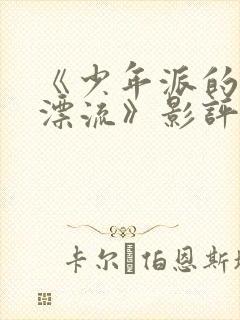 《少年派的
漂流》影評
卡尔 伯恩斯